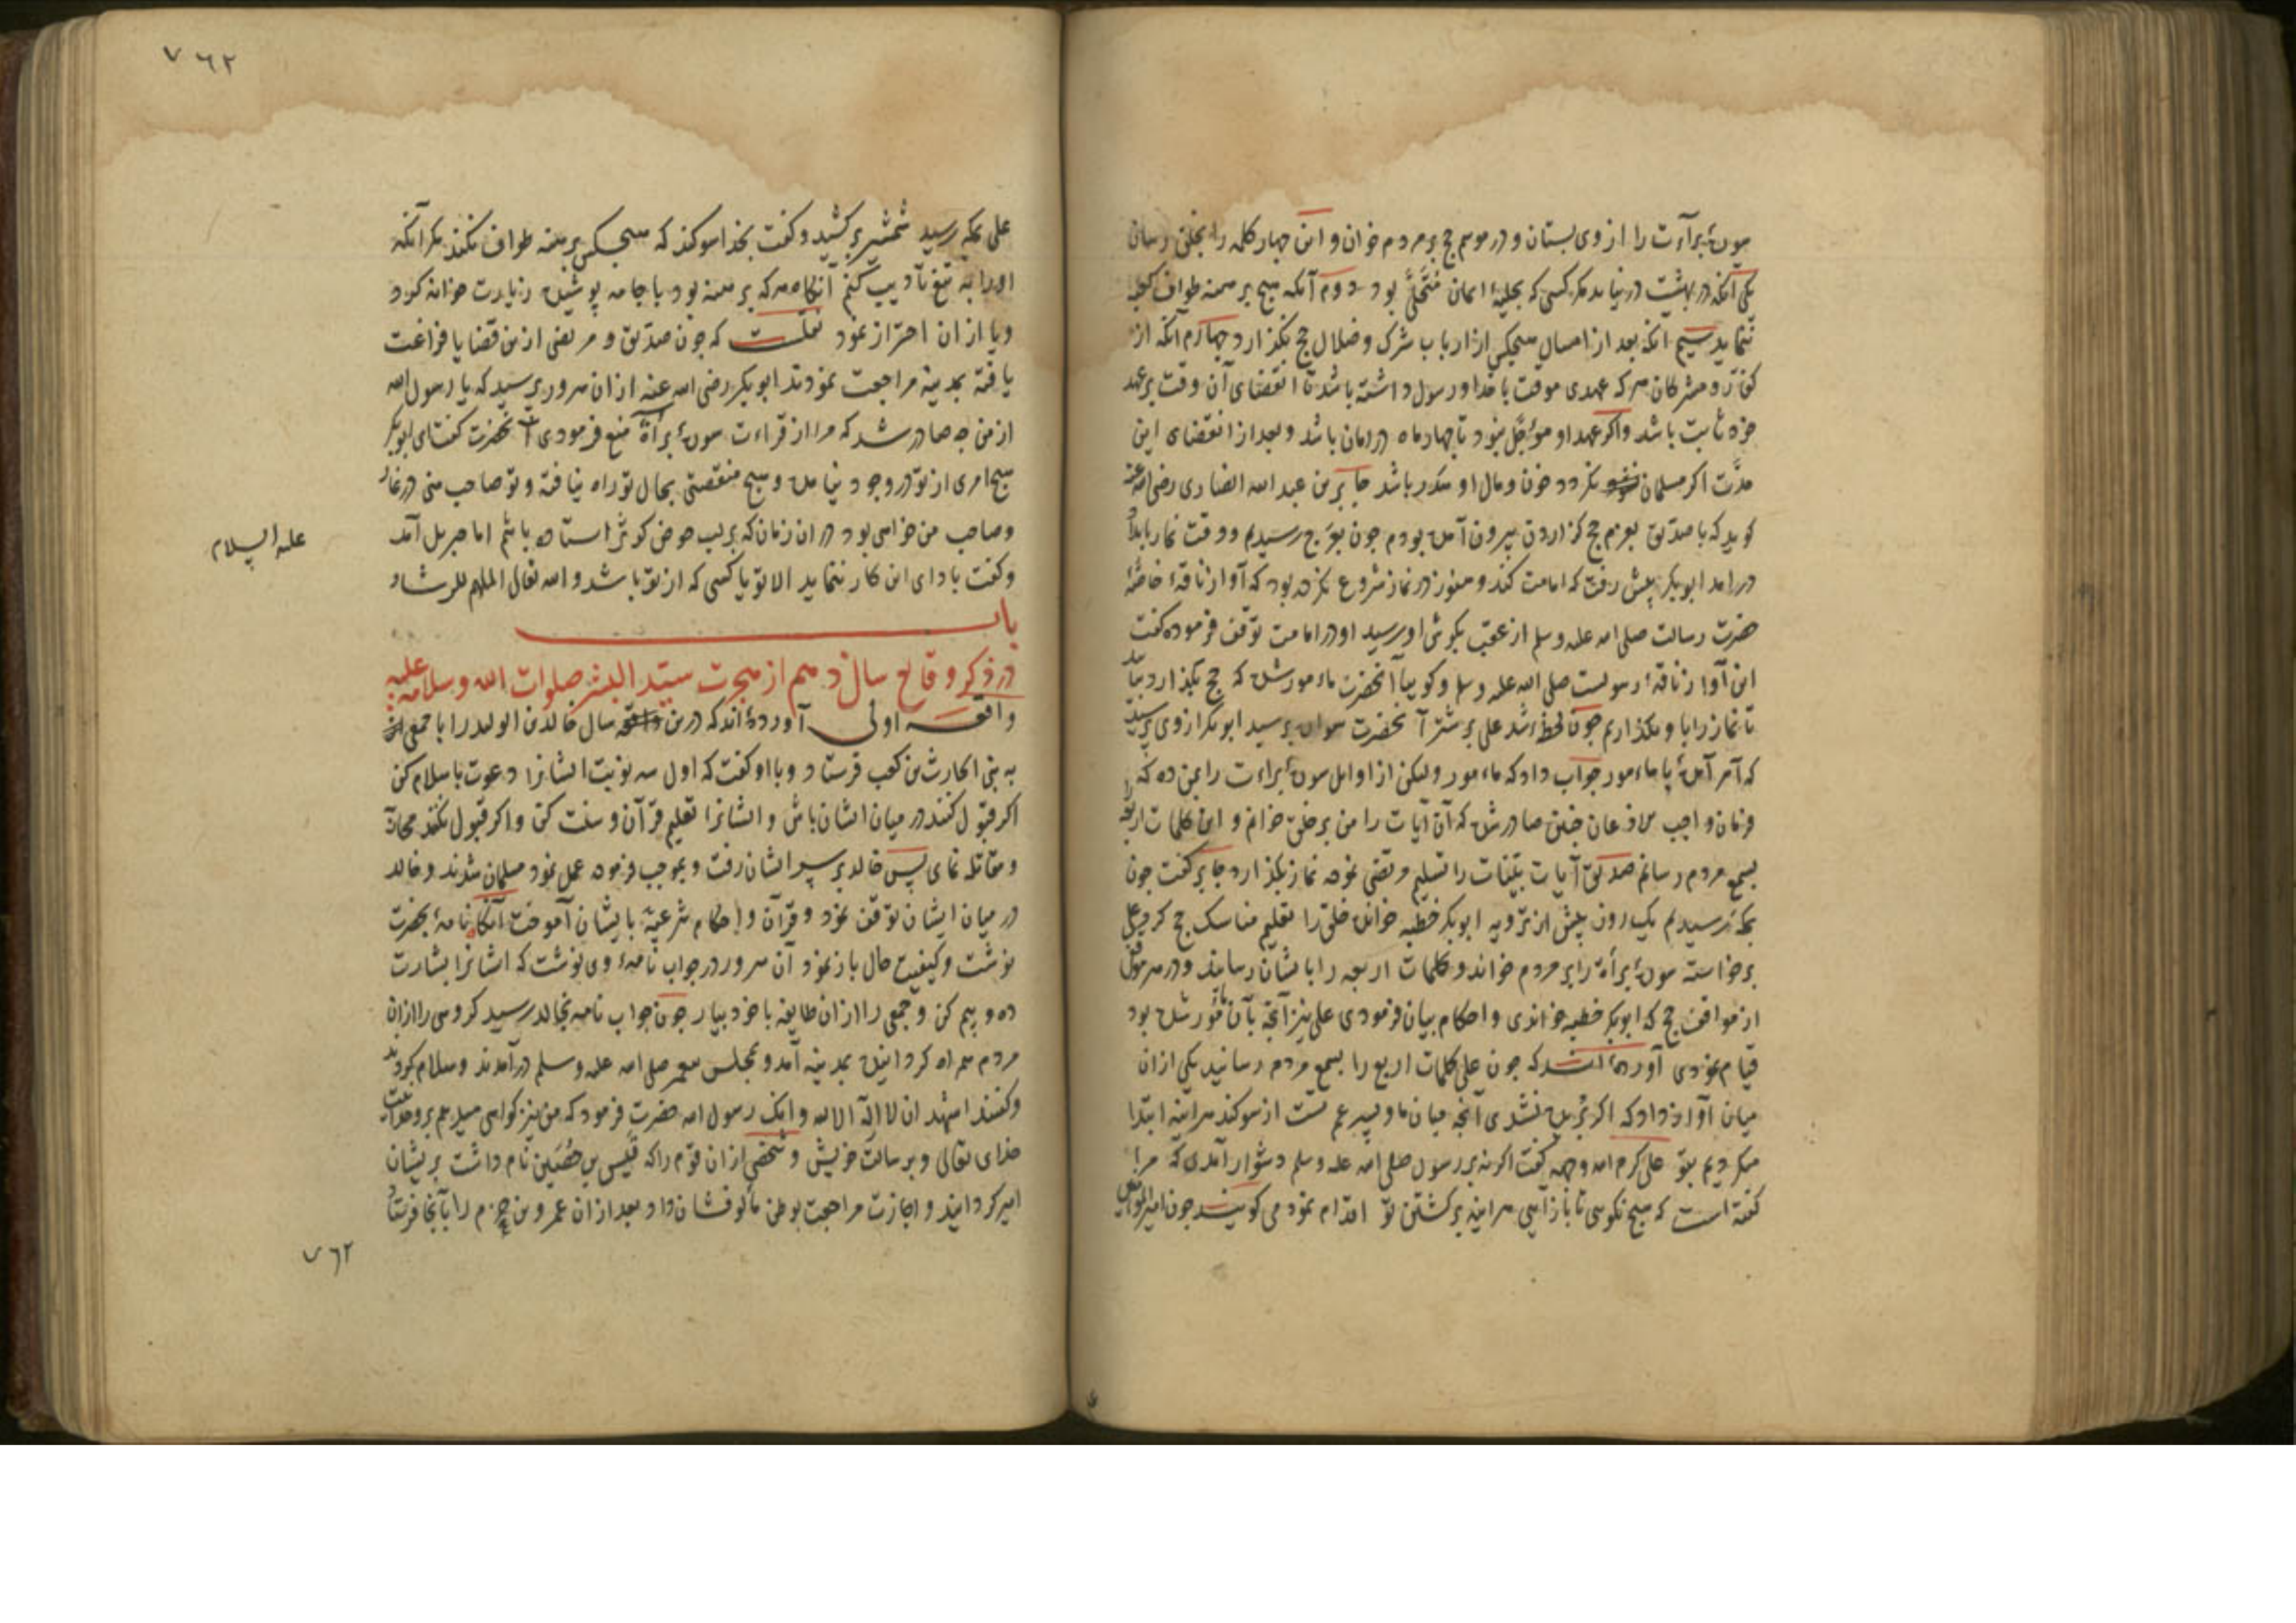 سورهٔ برآءت را از وی بستان و در موسم حج بر مردم خوان و این چهار کلمه را بخلق رسان
یکی آنکه در بهشت در نیاید مکر کسی که بحلیهٔ ایمان مُتَحَلّی بود دوم آنکه هیچ برهنه طواف کعبه
ننماید سیم آنکه بعد از امسال هیچکس از ارباب شرک و ضلال حج نکذارد چهارم آنکه از
کفار و مشرکان هر که عهدی موقت با خدا و رسول داشته باشد تا انقضای آن وقت بر عهد
خود ثابت باشد و اکر عهد او مؤجّل نبود تا چهار ماه در امان باشد و بعد از انقضای این
مدّت اکر مسلمان نکردد خون و مال او هدر باشد جابر بن عبد الله انصاری رضی الله عنه
کوید که با صدّیق بعزم حج کزاردن بیرون آمده بودم چون بعرج رسیدیم و وقت نماز بامداد
درامد ابوبکر پیش رفت که امامت کند و هنوز در نماز شروع نکرده بود که آواز ناقهٔ خاصّهٔ
حضرت رسالت صلی الله علیه وسلم از عقب بکوش او رسید او در امامت توقف فرموده کفت
این آواز ناقهٔ رسولست صلی الله علیه وسلم و کوییا آنحضرت مامور شده که حج بکذارد بیایید
تا نماز را با او بکذاریم چون لحظهٔ شد علی بر شتر آنحضرت سواره برسید ابوبکر از وی پرسید
که آمر آمدهٔ یا مامور جواب داد که مامور ولیکن از اوایل سورهٔ براءت را بمن ده که
فرمان واجب الاذعان چنین صادر شده که آن آیات را من بر خلق خوانم و این کلمات اربعه
بسمع مردم رسانم صدیق آیات بیّنات را تسلیم مرتضی نموده نماز بکذارد جابر کفت چون
بمکه رسیدیم یک روز پیش از ترویه ابوبکر خطبه خوانده خلق را تعلیم مناسک حج کرد و علی
برخاسته سورهٔ برأة را بر مردم خواند و کلمات اربعه را بایشان رسانید و در هر موقف
از مواقف حج که ابوبکر خطبه خواندی و احکام بیان فرمودی علی نیز آنچه بآن مأمور شده بود
قیام نمودی آورده‌اند که چون علی کلمات اربع را بسمع مردم رسانید یکی از آن
میان آواز داد که اکر بریده نشدی آنچه میان ما و پسر عم تست از سوکند هرآینه ابتدا
میکردیم بتو علی کرم الله وجهه کفت اکر نه بر رسول صلی الله علیه وسلم دشوار آمدی که مرا
کفته است که هیچ نکوی تا باز آیی هراینه برکشتن تو اقدام نمودمی کویند چون امیر المؤمنین
٧٦٢
علی بمکه رسید شمشیر برکشید و کفت بخدا سوکند که هیچکس برهنه طواف نکند مکر آنکه
اورا به تیغ تأدیب کنم آنکاه هر که برهنه بود یا جامه پوشیده زیارت خانه کرد
و یا از آن احتراز نمود نقلست که چون صدّیق و مرتضی از ین قضایا فراغت
یافته بمدینه مراجعت نمودند ابوبکر رضی الله عنه از ان سرور پرسید که یا رسول الله
از من چه صادر شد که مرا از قراءت سورهٔ برأة منع فرمودی آنحضرت کفت ای ابوبکر
هیچ امری از تو در وجود نیامده و هیچ منقصتی بحال تو راه نیافته و تو صاحب منی در غار
و صاحب من خواهی بود در ان زمان که بر لب حوض کوثر استاده باشم اما جبریل آمد
علیه السلام
و کفت باداى این کار ننماید الا تو یا کسی که از تو باشد و الله تعالی الملهم للرشاد
باب
در ذکر وقایع سال دهم از هجرت سیّد البشر صلوات الله وسلامه علیه
واقعه اولی آورده‌اند که درین سال خالد بن الولید را با جمعی
به بنی الحارث بن کعب فرستاد و با او کفت که اول سه نوبت ایشانرا دعوت باسلام کن
اکر قبول کنند در میان ایشان باش و ایشانرا تعلیم قرآن و سنت کن و اکر قبول نکنند محاربه
و مقاتله نمای پس خالد بر سر ایشان رفت و بموجب فرموده عمل نمود مسلمان شدند و خالد
در میان ایشان توقف نمود و قرآن و احکام شرعیّه بایشان آموخت آنکاه نامهٔ بحضرت
نوشت و کیفیت حال باز نمود آن سرور در جواب نامهٔ وی نوشت که ایشانرا بشارت
ده و بیم کن و جمعی را از ان طایفه با خود بیار چون جواب نامه بخالد رسید کروهی را ازان
مردم همراه کردانیده بمدینه آمد و بمجلس پیغمبر صلی الله علیه وسلم درآمدند و سلام کردند
و کفتند اشهد ان لا اله الا الله وانک رسول الله حضرت فرمود که من نیز کواهی میدهم بر وحدانیت
خدای تعالی و بر رسالت خویش و شخصی از ان قوم را که قیس بن حُصَین نام داشت بریشان
امیر کردانید و اجازت مراجعت بوطن مألوفشان داد و بعد از ان عمرو بن حزم را بآنجا فرستاد
٧٦٢